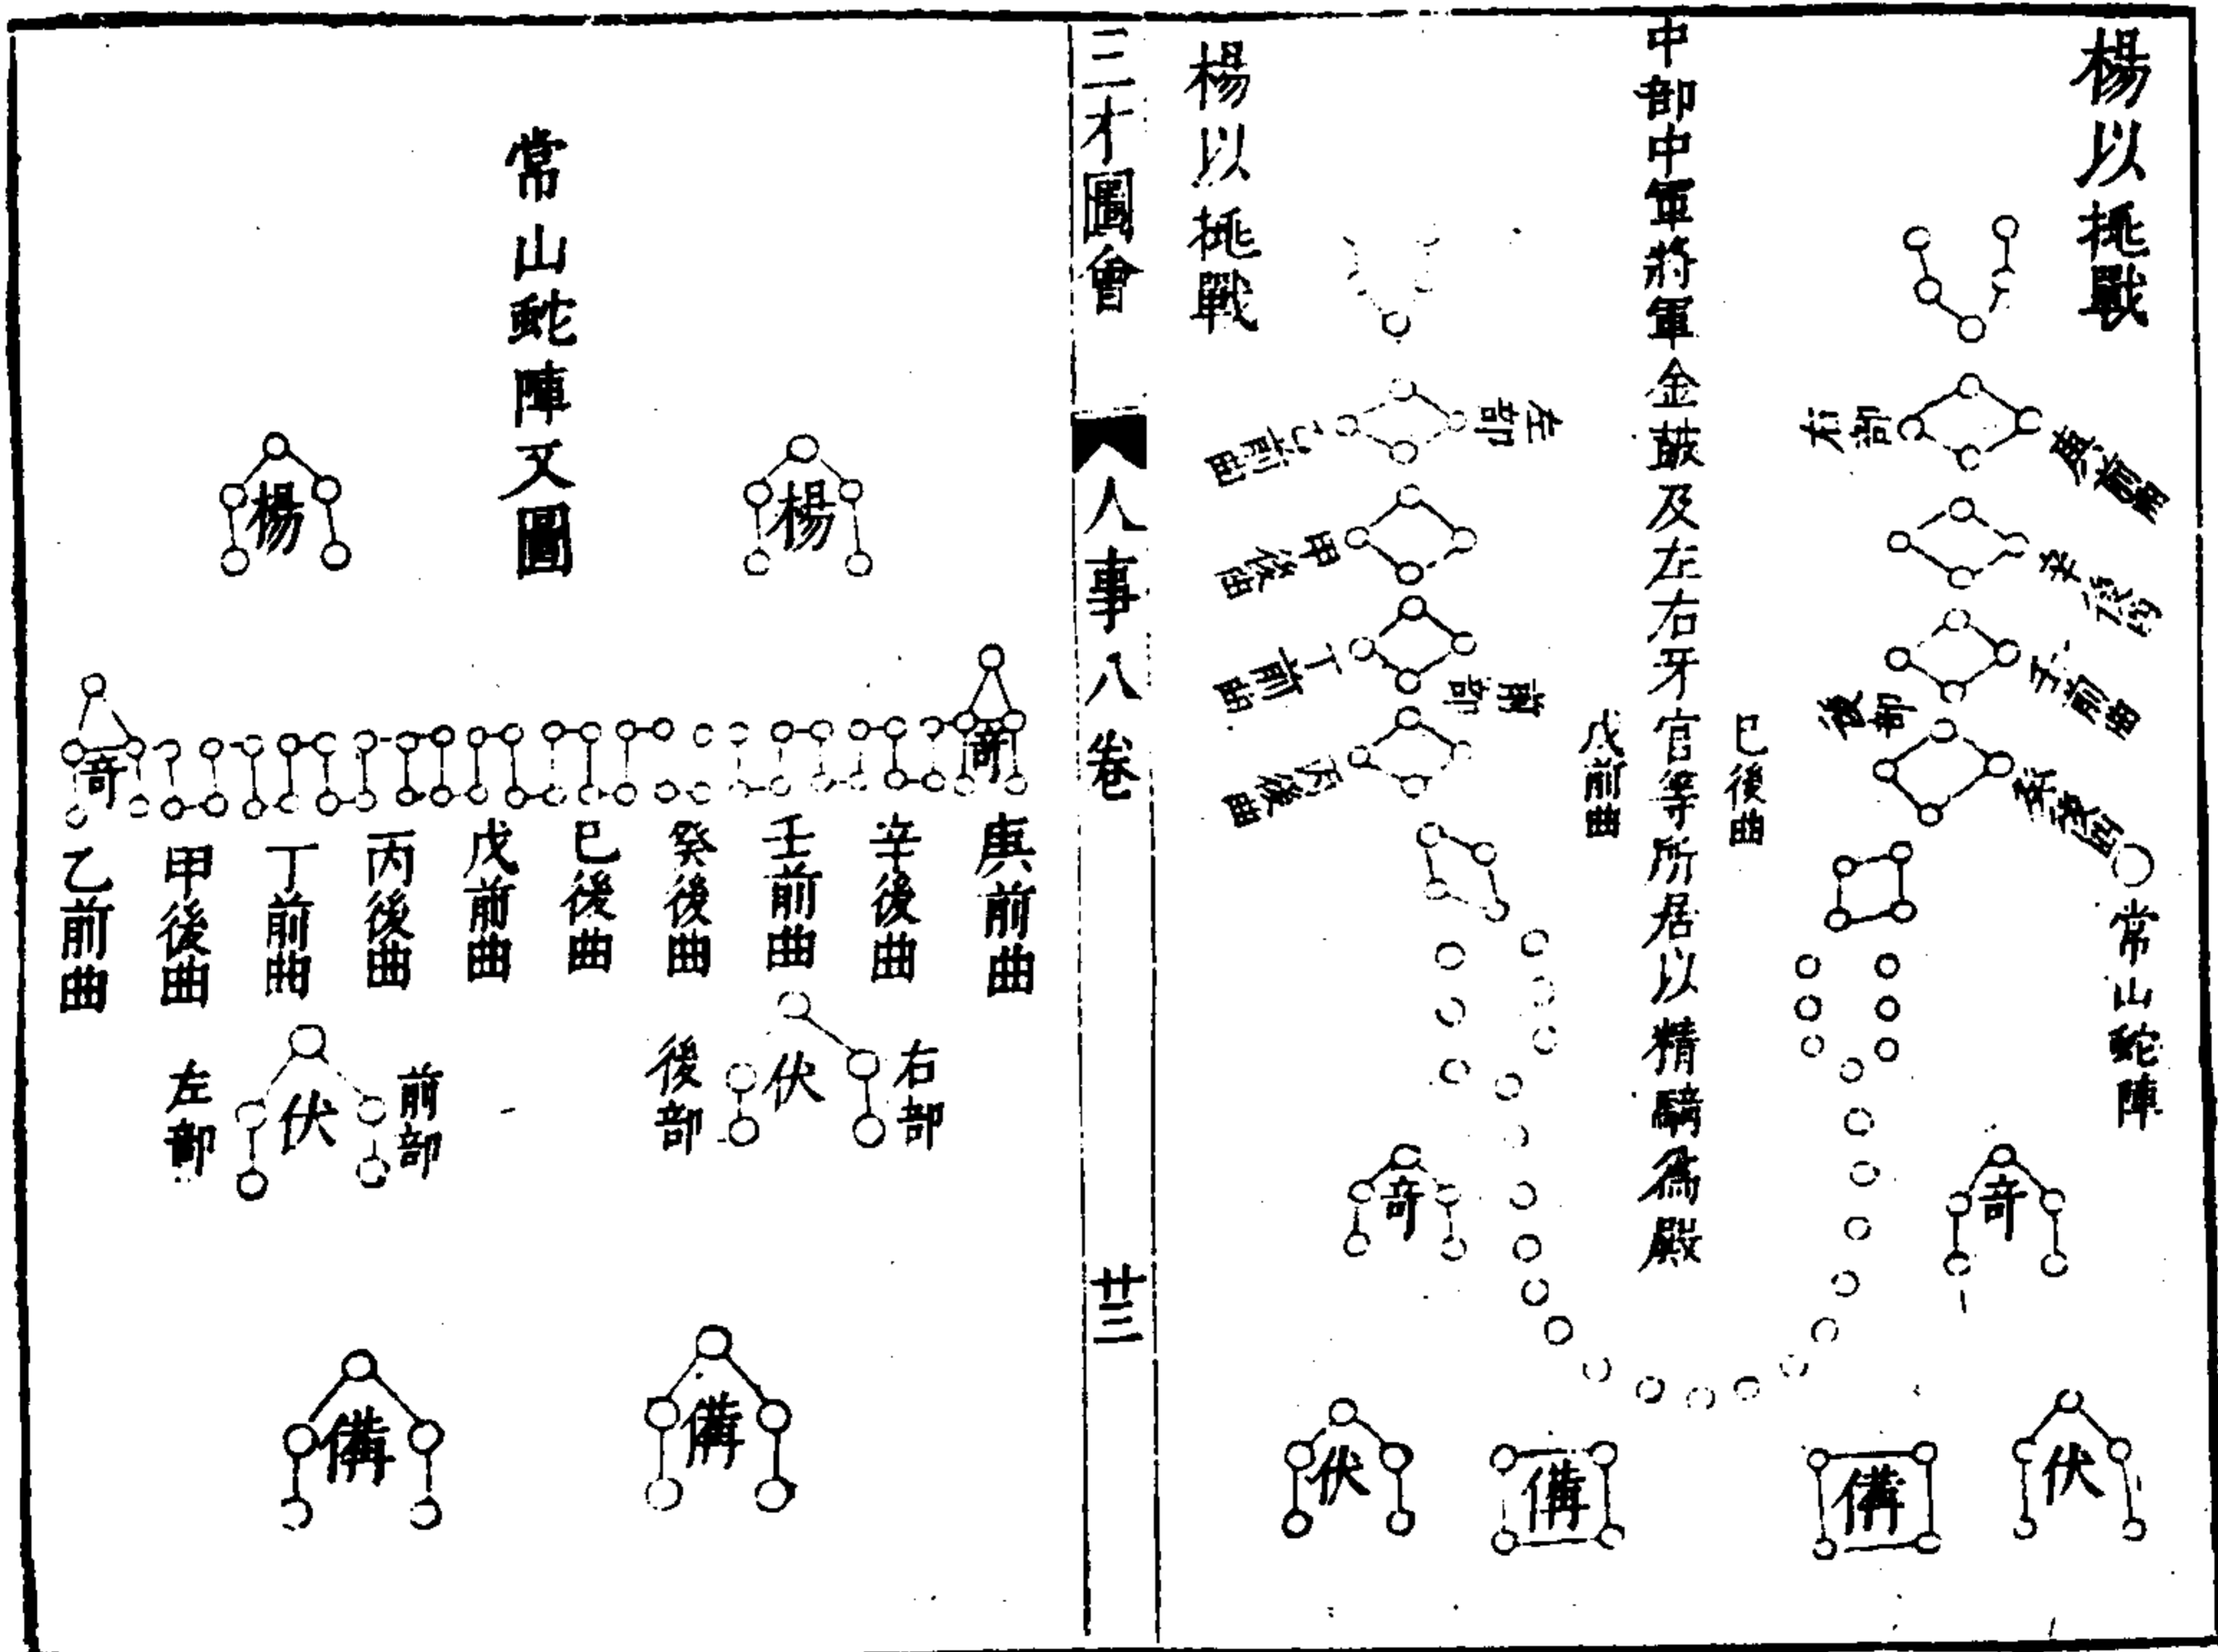 楊以挑戰
○常山蛇陣
右部
庚前曲
辛後曲
壬前曲
後部
癸後曲
奇
伏
備
己後曲
中部中軍將軍金鼓及左右牙官等所居以精騎為殿
戊前曲
左部
乙前曲
甲後曲
前部
丁前曲
丙後曲
奇
備
伏
楊以挑戰
三才圖會
人事八卷
廿三
常山蛇陣又圖
楊
楊
奇
奇
庚前曲
辛後曲
壬前曲
癸後曲
巳後曲
戊前曲
丙後曲
丁前曲
甲後曲
乙前曲
右部
伏
後部
前部
伏
左部
備
備